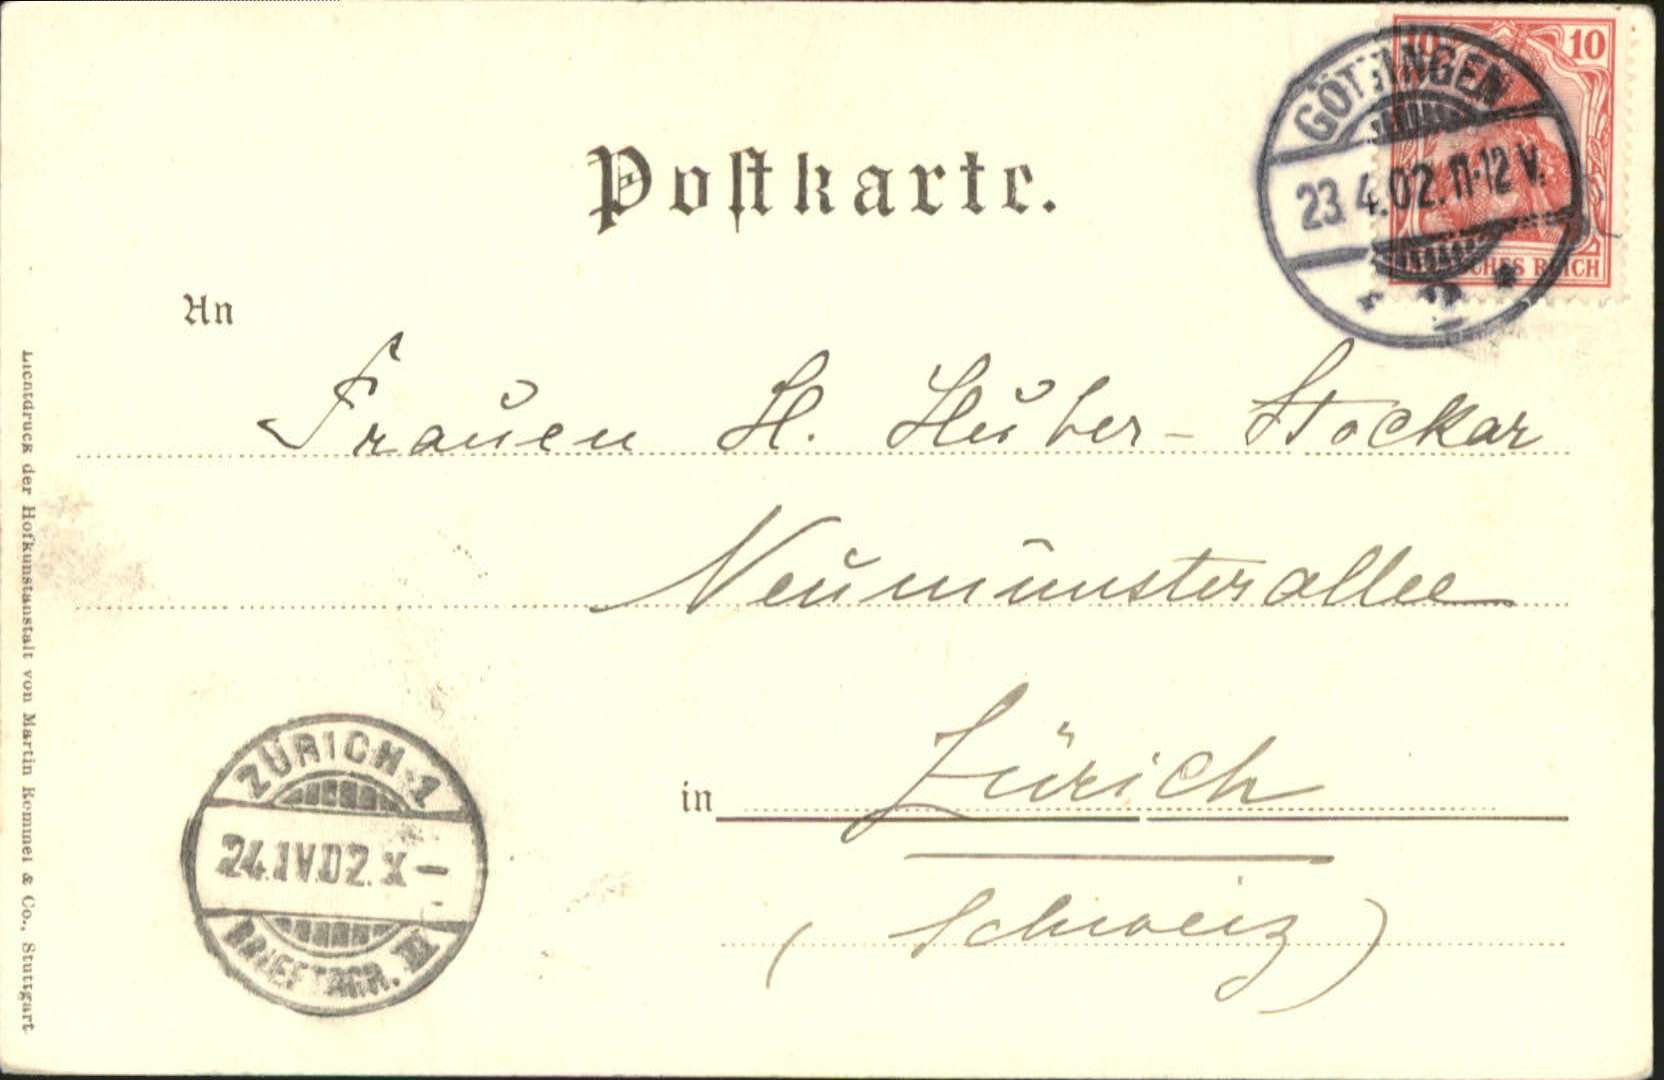 10 10
GÖTTINGEN
23.4.02.11-12 V.
* 2 *
DEUTSCHES REICH
Postkarte.
An
Frauen H. Huber-Stockar
Neumünsterallee
in Zürich
(Schweiz)
ZÜRICH 1
24.IV.02.X-
BRIEFTRGR. III
Lichtdruck der Hofkunstanstalt von Martin Rommel & Co., Stuttgart